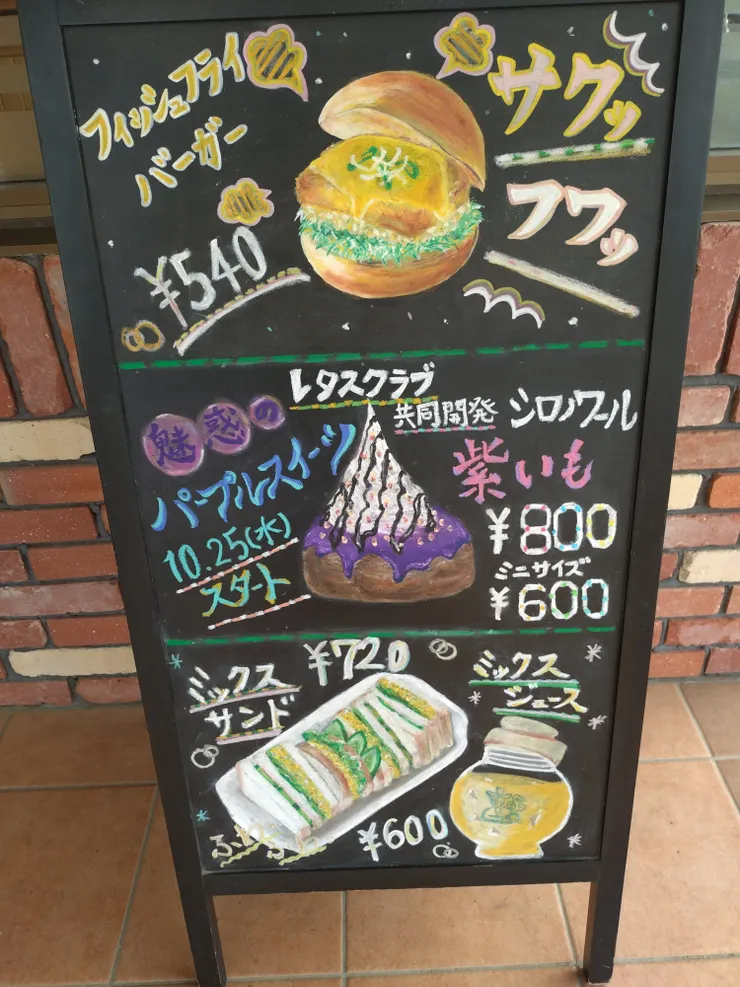 フィッシュフライ
バーガー
¥540
サクッ
フワッ
レタスクラブ
共同開発 シロノワール
魅惑の
パープルスイーツ
10.25(水)
スタート
紫いも
¥800
ミニサイズ
¥600
ミックス
サンド
¥720
ミックス
ジュース
¥600